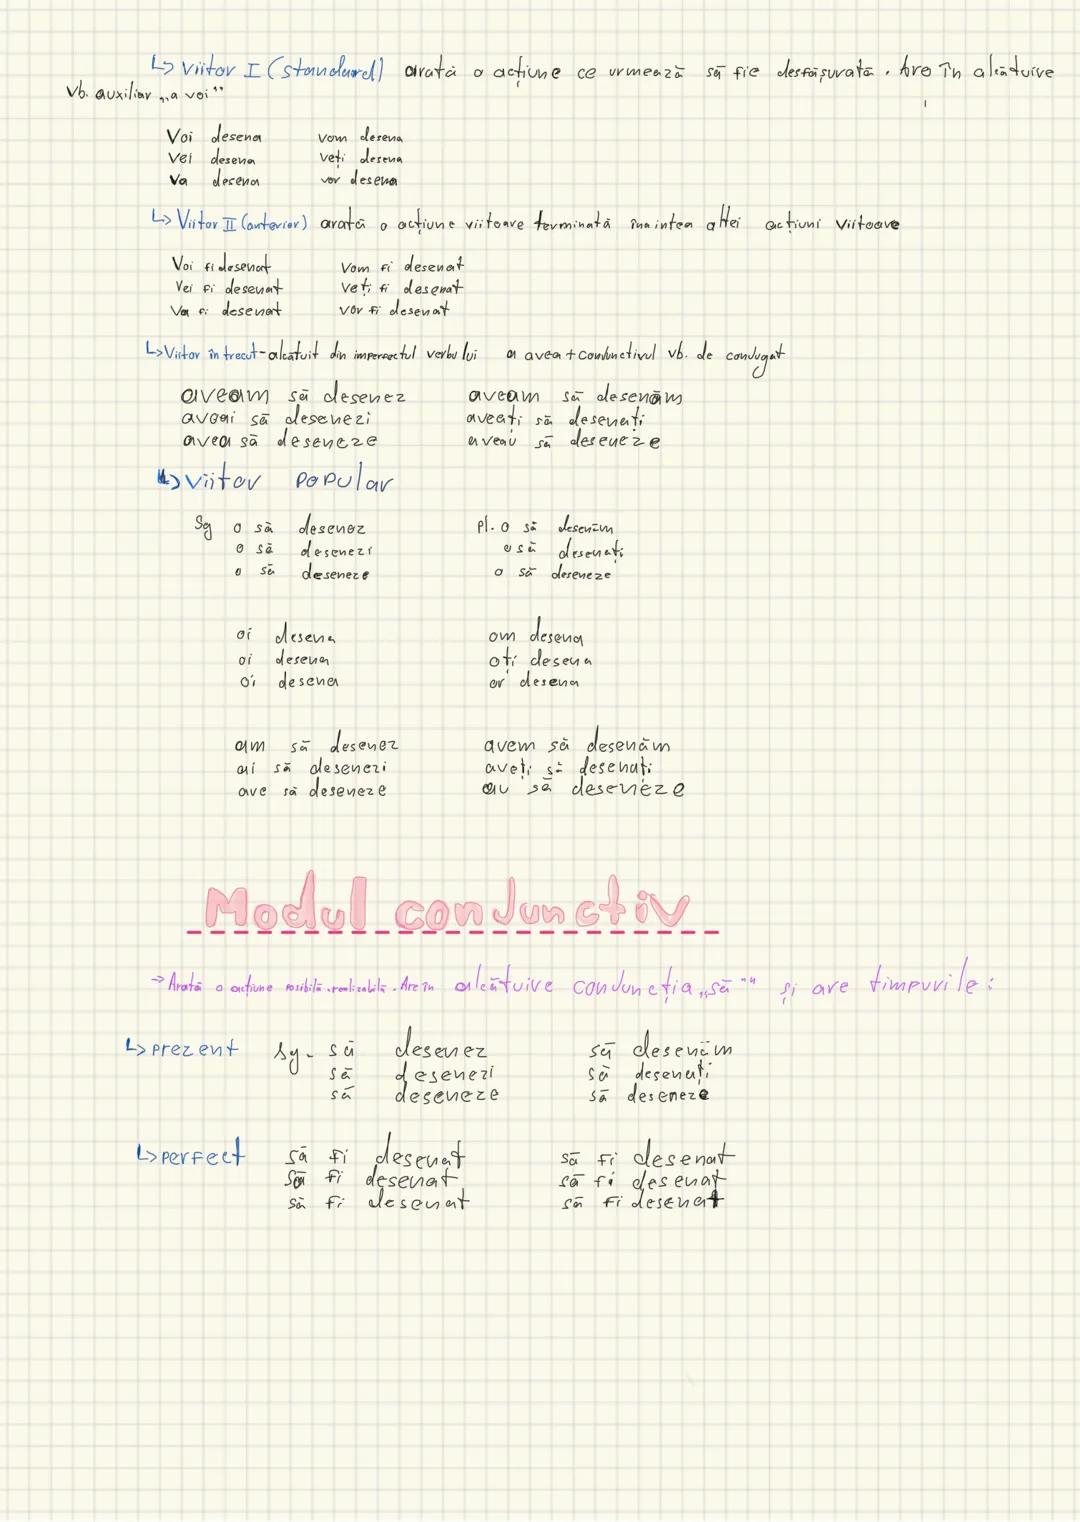 ↳ Viitor I (standard) arată o acțiune ce urmează să fie desfășurată. Are în alcătuire
vb. auxiliar „a voi"
Voi desena vom desena
Vei desena veți desena
Va desena vor desena
↳ Viitor II (anterior) arată o acțiune viitoare terminată înaintea altei acțiuni viitoare
Voi fi desenat Vom fi desenat
Vei fi desenat Veți fi desenat
Va fi desenat vor fi desenat
↳ Viitor în trecut - alcătuit din imperfectul verbului a avea + conjunctivul vb. de conjugat
aveam să desenez aveam să desenăm
aveai să desenezi aveați să desenați
avea să deseneze aveau să deseneze
↳ viitor popular
Sg o să desenez pl. o să desenăm
o să desenezi o să desenați
o să deseneze o să deseneze
oi desena om desena
oi desena oți desena
oi desena or desena
am să desenez avem să desenăm
ai să desenezi aveți să desenați
ave să deseneze au să deseneze
Modul conjunctiv
→ Arată o acțiune posibilă, realizabilă. Are în alcătuire conjuncția „să" și are timpurile:
↳ prezent sg. să desenez să desenăm
să desenezi să desenați
să deseneze să deseneze
↳ perfect să fi desenat să fi desenat
să fi desenat să fi desenat
să fi desenat să fi desenat